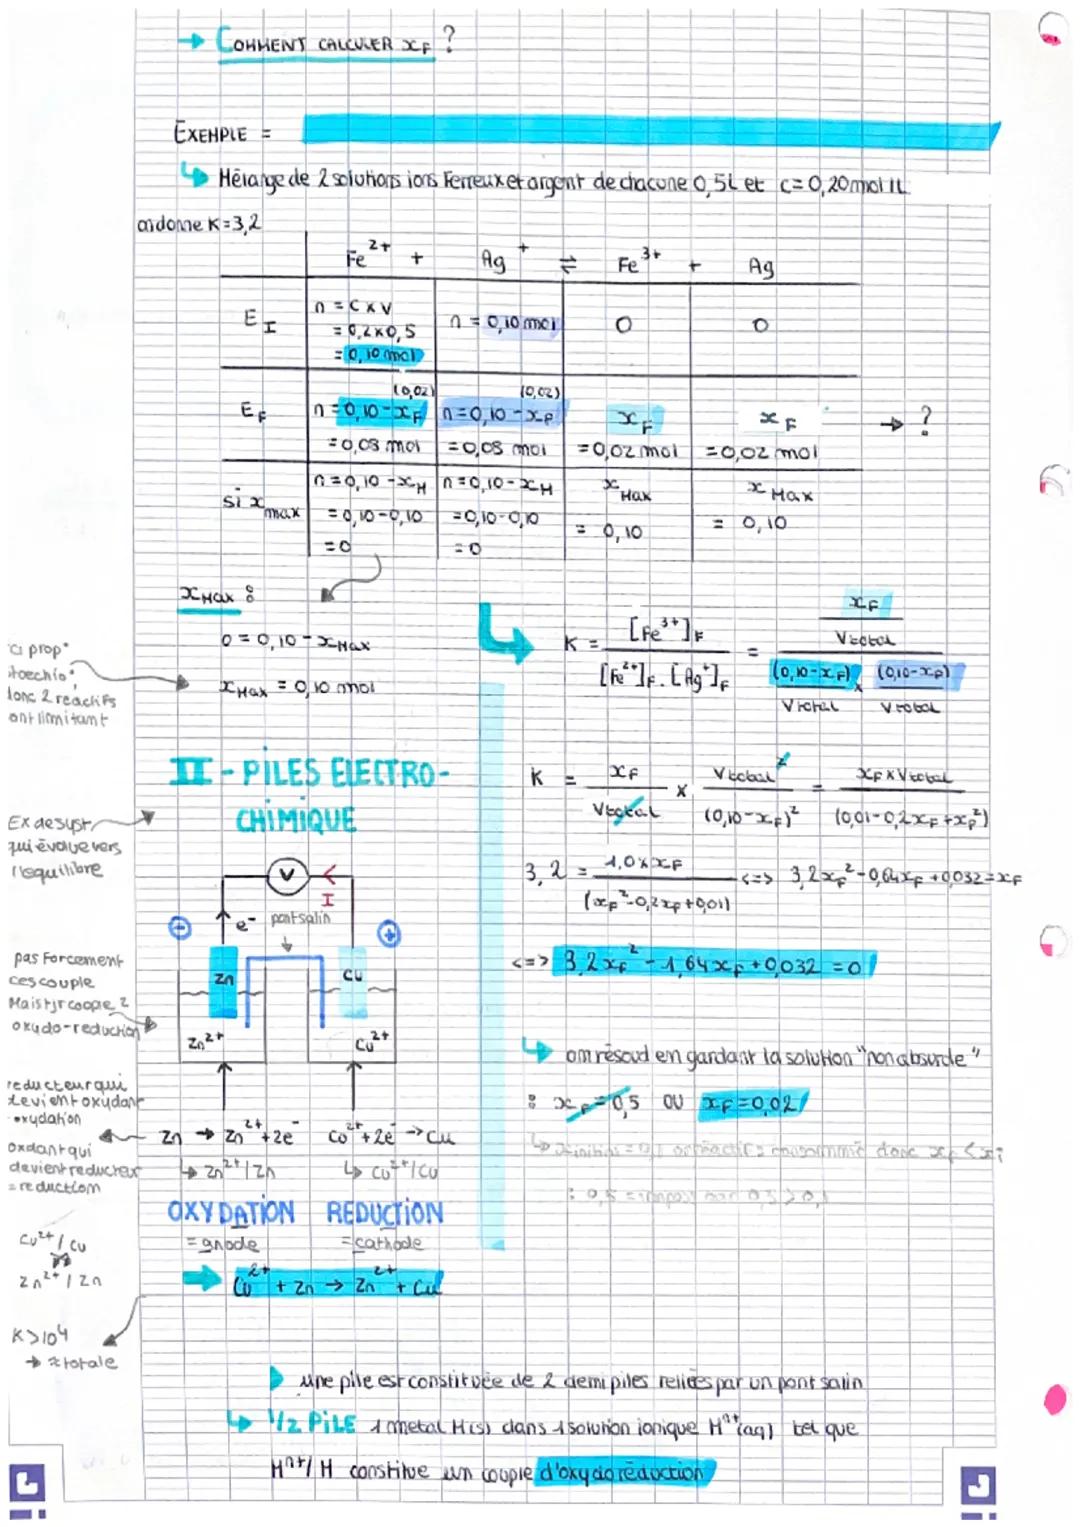 → COMMENT CALCULER xF ?
EXEMPLE =
↳ Mélange de 2 solutions ions Ferreux et argent de chacune 0,5L et c = 0,20 mol/L
on donne K = 3,2
Fe²⁺ + Ag⁺ ⇌ Fe³⁺ + Ag
EI
n = C x V
= 0,2 x 0,5
= 0,10 mol
n = 0,10 mol
0
0
EF
(0,02)
n = 0,10 - xF
= 0,08 mol
(0,02)
n = 0,10 - xF
= 0,08 mol
xF
= 0,02 mol
xF
= 0,02 mol
→ ?
si xmax
n = 0,10 - xM
= 0,10 - 0,10
= 0
n = 0,10 - xM
= 0,10 - 0,10
= 0
xMax
= 0,10
xMax
= 0,10
xMax :
0 = 0,10 - xMax
xMax = 0,10 mol
ci prop°
stoechio°
donc 2 réactifs
ont limitant
K = [Fe³⁺]F / [Fe²⁺]F . [Ag⁺]F = (xF / Vtotal) / ((0,10 - xF) / Vtotal x (0,10 - xF) / Vtotal)
K = xF / Vtotal x Vtotal² / (0,10 - xF)² = xF x Vtotal / (0,01 - 0,2xF + xF²)
3,2 = 1,0 x xF / (xF² - 0,2xF + 0,01) <=> 3,2xF² - 0,64xF + 0,032 = xF
<=> 3,2xF² - 1,64xF + 0,032 = 0
↳ on résoud en gardant la solution "non absurde"
: xF = 0,5 OU xF = 0,02
II - PILES ELECTRO-
CHIMIQUE
Ex de syst
qui évolue vers
l'équilibre
V
I
e⁻
pont salin
+
Zn
Cu
Zn²⁺
Cu²⁺
pas Forcement
ces couple
Mais tjr couple 2
oxydo-reduction
reducteur qui
devient oxydant
= oxydation
oxdant qui
devient reducteur
= reduction
Zn → Zn²⁺ + 2e⁻
Cu²⁺ + 2e⁻ → Cu
↳ Zn²⁺ / Zn
↳ Cu²⁺ / Cu
OXYDATION
REDUCTION
= anode
= cathode
→ Cu²⁺ + Zn → Zn²⁺ + Cu
Cu²⁺ / Cu
Zn²⁺ / Zn
K > 10⁴
→ ≈ totale
une pile est constituée de 2 demi piles reliées par un pont salin
↳ 1/2 PILE 1 metal M(s) dans 1 solution ionique Mⁿ⁺(aq) tel que
Mⁿ⁺/M constitue un couple d'oxydo réduction